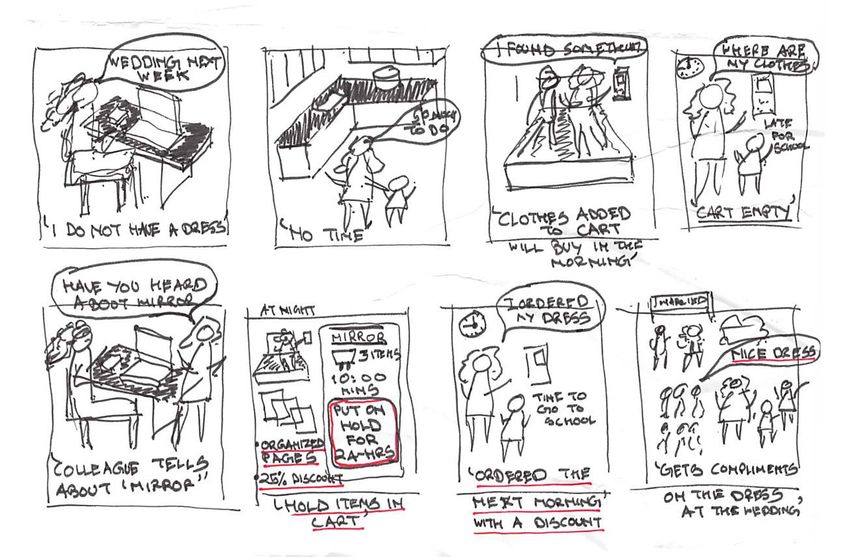 WEDDING NEXT
WEEK
'I DO NOT HAVE A DRESS'
SO MUCH
TO DO
'NO TIME'
I FOUND SOMETHING
'CLOTHES ADDED
TO CART
WILL BUY IN THE
MORNING'
WHERE ARE
MY CLOTHES
LATE
FOR
SCHOOL
'CART EMPTY'
HAVE YOU HEARD
ABOUT MIRROR
'COLLEAGUE TELLS
ABOUT 'MIRROR''
AT NIGHT
MIRROR
3 ITEMS
10:00
MINS
PUT ON
HOLD
FOR
24-HRS
• ORGANIZED
PAGES
• 25% DISCOUNT
'HOLD ITEMS IN
CART'
I ORDERED
MY DRESS
TIME TO
GO TO
SCHOOL
'ORDERED THE
NEXT MORNING'
WITH A DISCOUNT
NICE DRESS
'GETS COMPLIMENTS
ON THE DRESS,
AT THE WEDDING